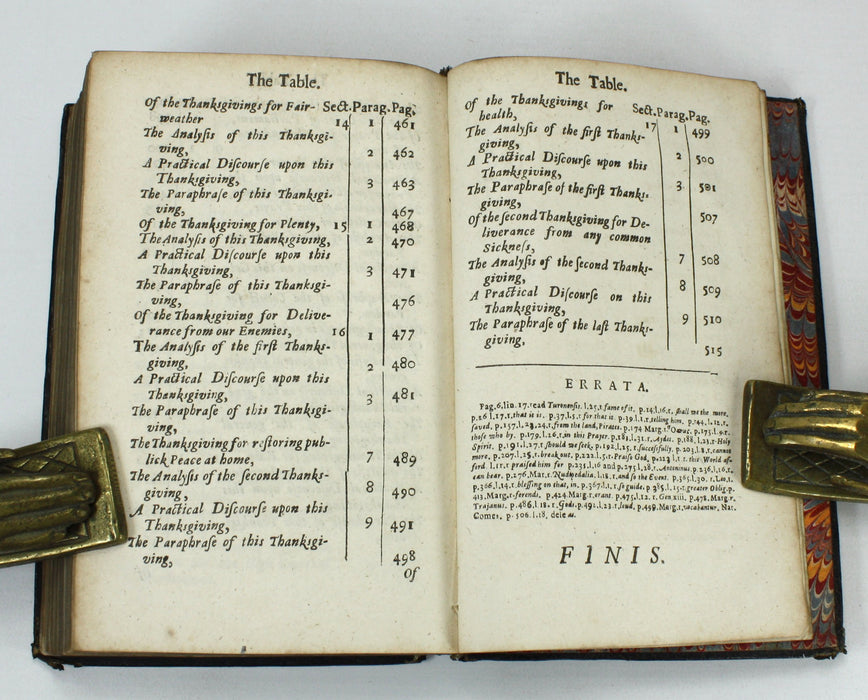 The Table.
Sect. Parag. Pag.
Of the Thanksgivings for Fair-
weather 14 1 461
The Analysis of this Thanksgi-
ving, 2 462
A Practical Discourse upon this
Thanksgiving, 3 463
The Paraphrase of this Thanksgi-
ving, 467
Of the Thanksgiving for Plenty, 15 1 468
The Analysis of this Thanksgiving, 2 470
A Practical Discourse upon this
Thanksgiving, 3 471
The Paraphrase of this Thanksgi-
ving, 476
Of the Thanksgiving for Delive-
rance from our Enemies, 16 1 477
The Analysis of the first Thanks-
giving, 2 480
A Practical Discourse upon this
Thanksgiving, 3 481
The Paraphrase of this Thanksgi-
ving,
The Thanksgiving for restoring pub-
lick Peace at home, 7 489
The Analysis of the second Thanks-
giving, 8 490
A Practical Discourse upon this
Thanksgiving, 9 491
The Paraphrase of this Thanksgi-
ving, 498
Of
The Table.
Sect. Parag. Pag.
Of the Thanksgivings for
health, 17 1 499
The Analysis of the first Thanks-
giving, 2 500
A Practical Discourse upon this
Thanksgiving, 3 501
The Paraphrase of the first Thanks-
giving, 507
Of the second Thanksgiving for De-
liverance from any common
Sickness, 7 508
The Analysis of the second Thanks-
giving, 8 509
A Practical Discourse on this
Thanksgiving, 9 510
The Paraphrase of the last Thanks-
giving, 515
ERRATA.
Pag. 6. lin. 17. read Turonensis. l. 25. r. fame of it. p. 14. l. 16. r. shall we the more.
p. 26 l. 17. r. that is it. p. 37. l. 5. r. for it. p. 39. l. 1. r. telling him. p. 44. l. 12. r.
saved. p. 157. l. 23, 24. r. from the land, Pirates. p. 174 Marg. r. p. 175. l. 9. r.
those who by. p. 179. l. 26. r. in this Prayer. p. 181. l. 31. r. p. 188. l. 23. r. Holy
Spirit. p. 191. l. 27. r. should we seek. p. 192. l. 25. r. successfully. p. 203. l. 8. r. cannot
more. p. 207. l. 25. r. break out. p. 222. l. 5. r. Praise God. p. 223 l. 1. r. this World af-
ford. l. 11. r. praised him for p. 235. l. 16 and p. 275. l. 28. r. Antoninus p. 236. l. 16. r.
can bear. p. 276. Mar. r. l. 18. r. and so the Event. p. 365. l. 30. r. Leo. 1.
p. 366. l. 14. r. blessing on that, in. p. 367. l. 1. r. so guide. p. 385. l. 15. r. greater Oblig. p.
413. Marg. r. ferendi. p. 424. Marg. r. erant. p. 475. l. 12. r. Gen xiii. p. 478. Marg. r.
Trajanus. p. 486. l. 18. r. Gods. p. 492. l. 23. r. lead. p. 499. Marg. r. vacabantur. Nat.
Comes. p. 506. l. 18, dele as.
FINIS.